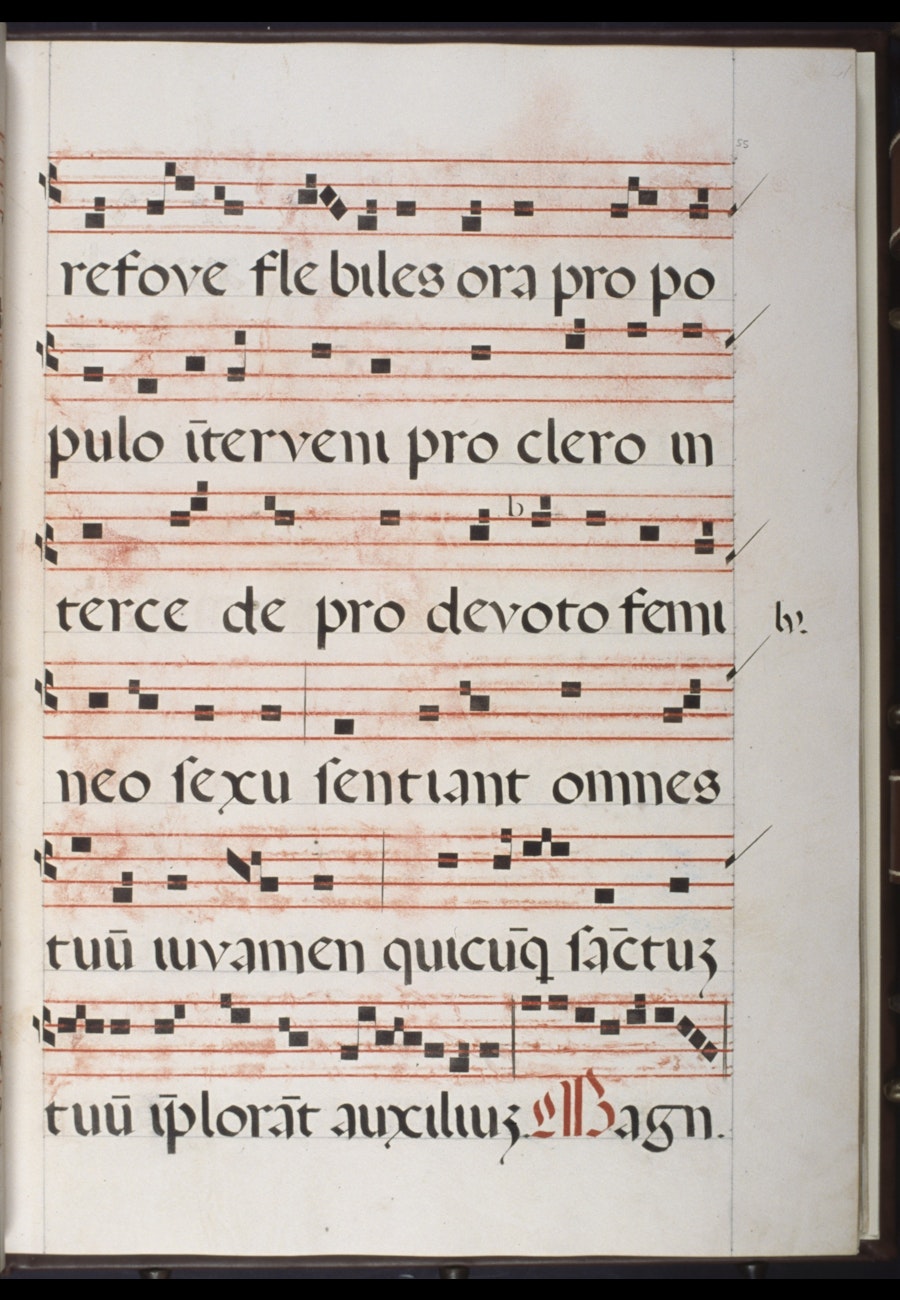 55
refove fle biles ora pro po
pulo īterveni pro clero in
b
terce de pro devoto femi
neo sexu sentiant omnes
tuū iuvamen quicūq sāctuʒ
tuū īplorāt auxiliuʒ. Magn.